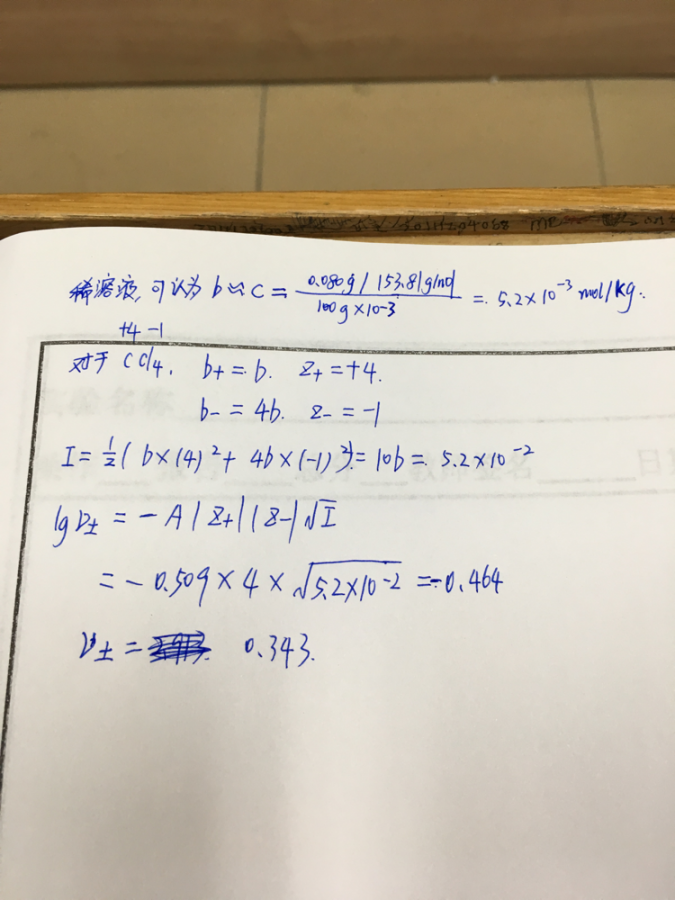 稀溶液,可认为 b≈c = (0.080g / 153.81g/mol) / (100g×10-3) = 5.2×10⁻³ mol/kg.
+4 -1
对于 CCl₄, b+ = b. z+ = +4.
b- = 4b. z- = -1
I = ½( b×(4)² + 4b×(-1)²) = 10b = 5.2×10⁻²
lgγ± = -A|z+||z-|√I
= -0.509×4×√5.2×10⁻² = -0.464
γ± = 0.343.